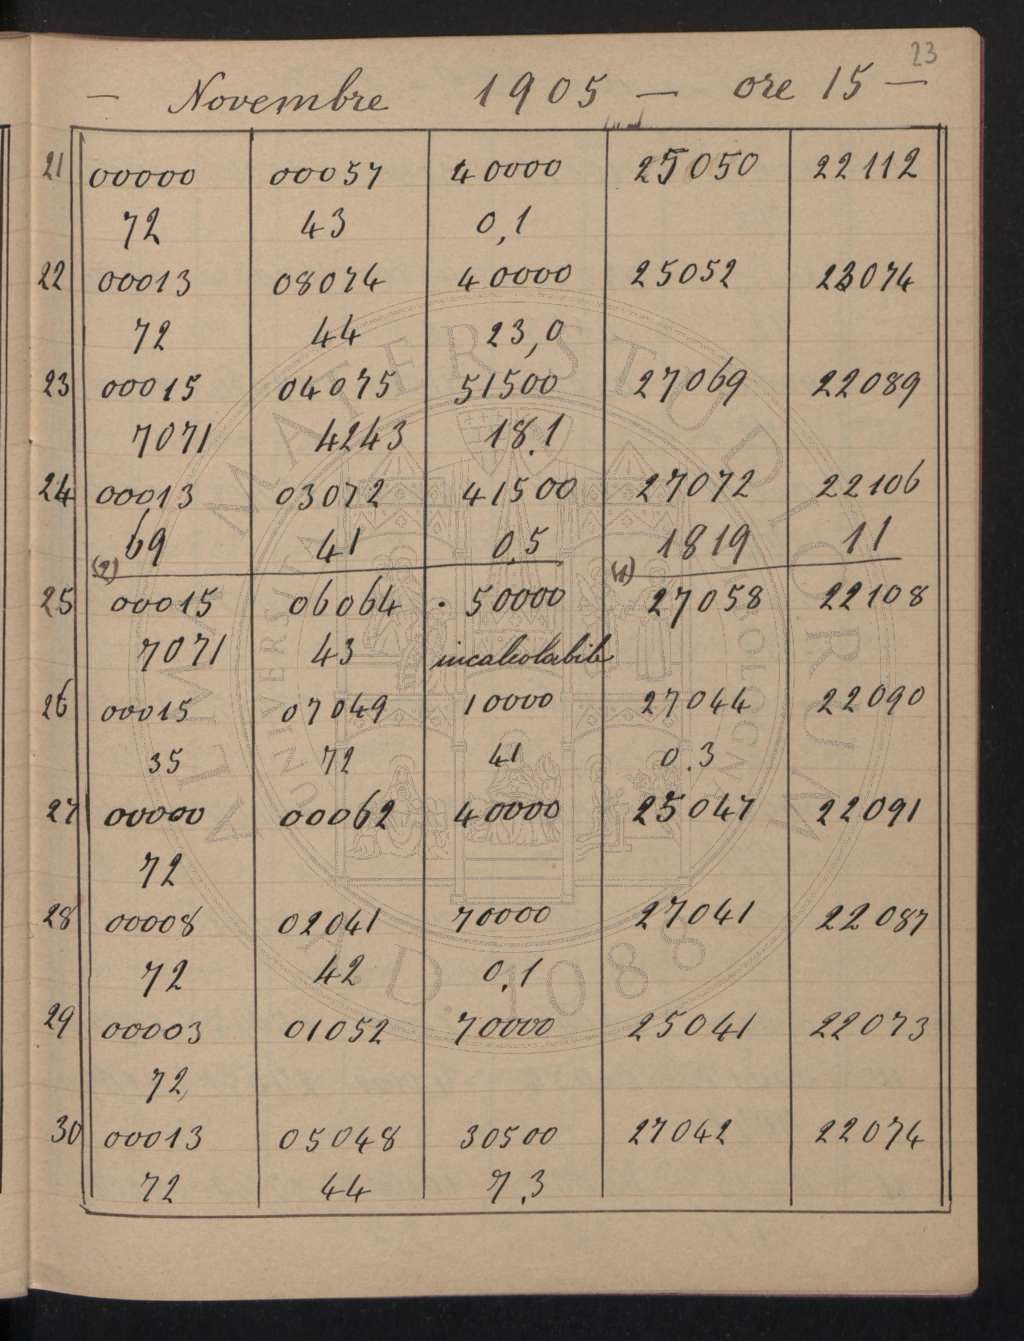 23
— Novembre 1905 — ore 15 —
21 00000 00057 40000 25050 22112
72 43 0,1
22 00013 08074 40000 25052 23074
72 44 23,0
23 00015 04075 51500 27069 22089
7071 4243 18.1
24 00013 03072 41500 27072 22106
69 41 0.5 1819 11
(2) (1)
25 00015 06064 . 50000 27058 22108
7071 43 incalcolabile
26 00015 07049 10000 27044 22090
35 72 41 0.3
27 00000 00062 40000 25047 22091
72
28 00008 02041 70000 27041 22087
72 42 0,1
29 00003 01052 70000 25041 22073
72
30 00013 05048 30500 27042 22074
72 44 7.3
ALMA MATER STUDIORUM
UNIVERSITÀ BOLOGNA
A.D. 1088